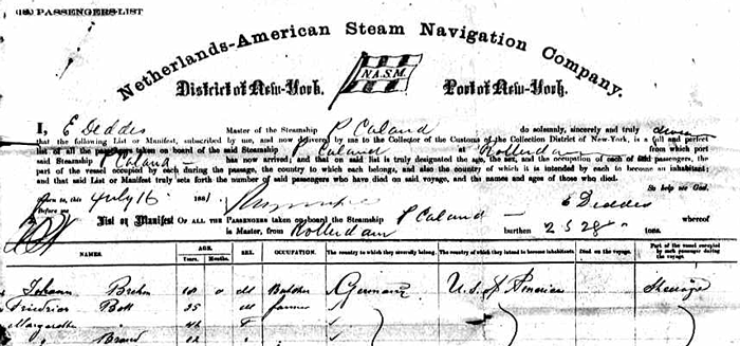 (180) PASSENGERS LIST
Netherlands-American Steam Navigation Company.
District of New-York. N.A.S.M. Port of New-York.
I, E Deddes Master of the Steamship P Caland do solemnly, sincerely and truly
that the following List or Manifest, subscribed by me, and now delivered by me to the Collector of the Customs of the Collection District of New-York, is a full and perfect
list of all the passengers taken on board of the said Steamship P Caland at Rotterdam from which port
said Steamship P Caland has now arrived; and that on said list is truly designated the age, the sex, and the occupation of each of said passengers, the
part of the vessel occupied by each during the passage, the country to which each belongs, and also the country of which it is intended by each to become an inhabitant;
and that said List or Manifest truly sets forth the number of said passengers who have died on said voyage, and the names and ages of those who died.
So help me God.
Sworn to, this July 16 1881 E Deddes
Before me
List or Manifest OF ALL THE PASSENGERS taken on board the Steamship P Caland whereof
is Master, from Rotterdam burthen 2528 tons.
NAMES. AGE. Years. Months. SEX. OCCUPATION. The country to which they severally belong. The country of which they intend to become inhabitants Died on the voyage. Part of the vessel occupied by each passenger during the voyage.
Johann Brehm M Butcher Germany U.S. of America Steerage
Friedrich Bott 35 M farmer
Margaretha 46 F
Brand